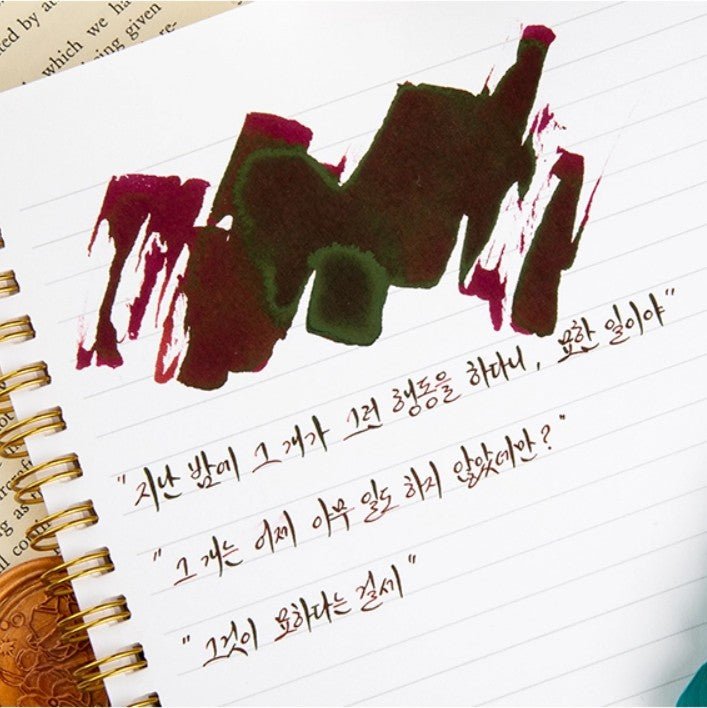 by
which we
given
"지난 밤에 그 개가 그런 행동을 하다니, 묘한 일이야"
"그 개는 어제 아무 일도 하지 않았네만?"
"그것이 묘하다는 걸세"